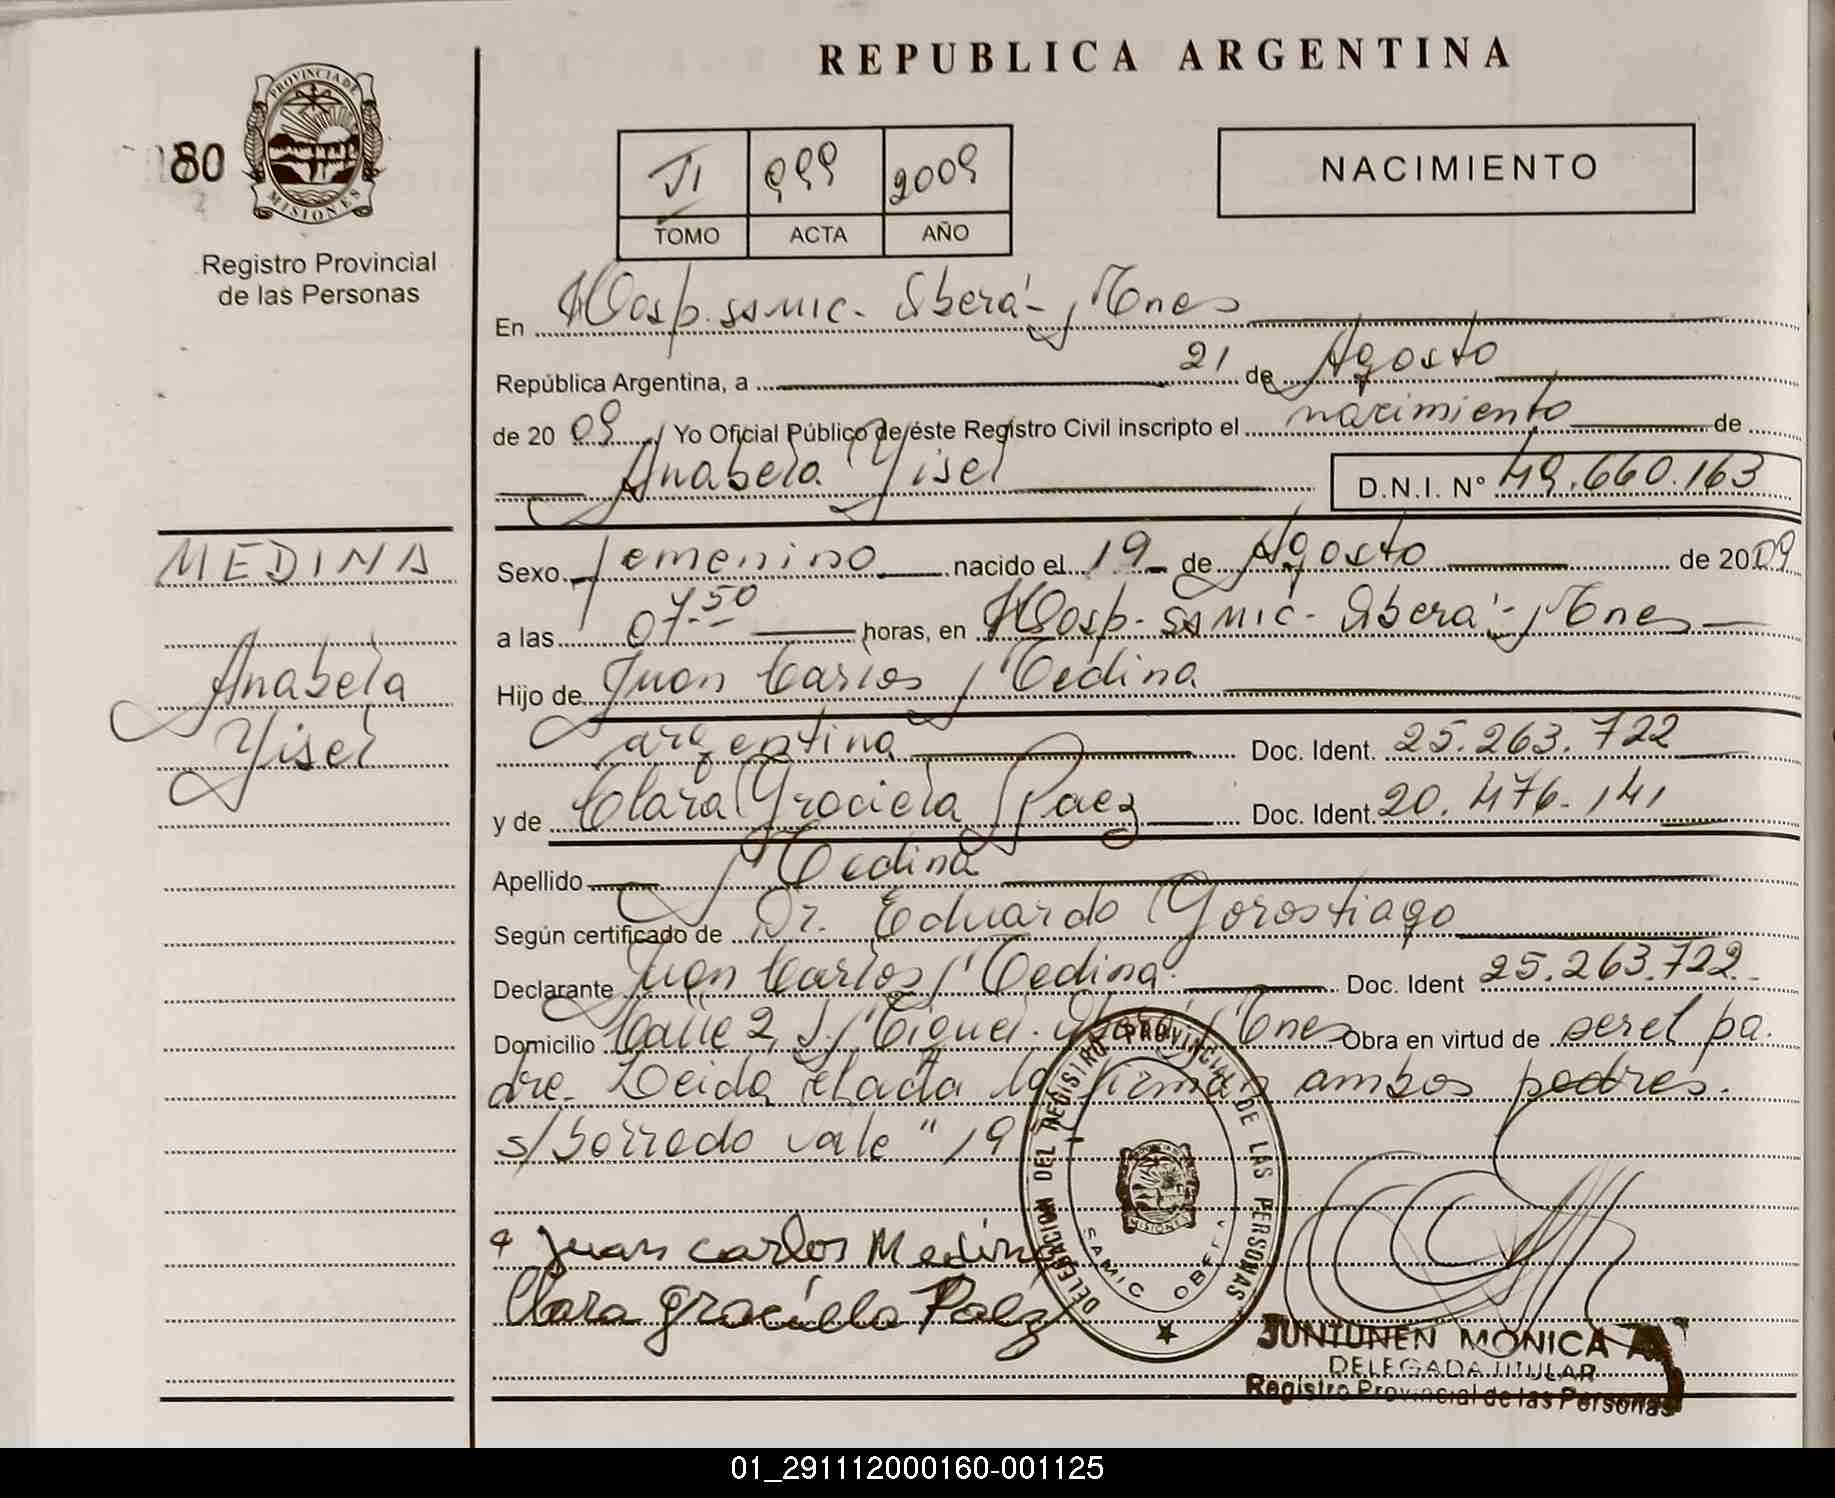 REPUBLICA ARGENTINA
180
PROVINCIA DE MISIONES
Registro Provincial
de las Personas
VI 999 2009
TOMO ACTA AÑO
NACIMIENTO
En Hosp. SAMIC - Oberá - Mnes
República Argentina, a 21 de Agosto
de 2009 Yo Oficial Público de éste Registro Civil inscripto el nacimiento de
Anabela Yisel D.N.I. N° 49.660.163
MEDINA
Anabela
Yisel
Sexo femenino nacido el 19 de Agosto de 2009
a las 07.50 horas, en Hosp. SAMIC - Oberá - Mnes
Hijo de Juan Carlos Medina
argentina Doc. Ident. 25.263.722
y de Clara Graciela Paez Doc. Ident. 20.476.141
Apellido Medina
Según certificado de Dr. Eduardo Gorostiago
Declarante Juan Carlos Medina Doc. Ident 25.263.722
Domicilio Calle 2, S. Miguel. Oberá, Mnes Obra en virtud de ser el pa-
dre. Leida el acta la firman ambos padres.
s/borrado vale "19"
Juan Carlos Medina
Clara Graciela Paéz
DELEGACION DEL REGISTRO PROVINCIAL DE LAS PERSONAS
MISIONES
SAMIC OBERA
JUNTUNEN MONICA A.
DELEGADA TITULAR
Registro Provincial de las Personas
01_291112000160-001125